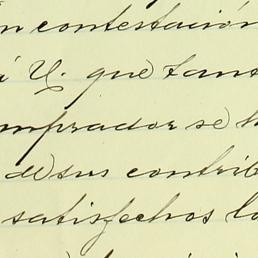 n contestación
á V. que tant
mprador se h
de sus contrib
satisfechos lo